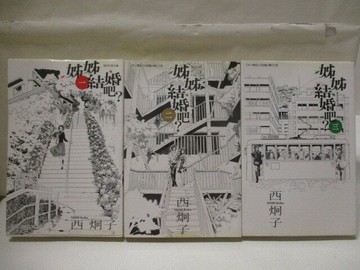 姊姊
結婚
吧?
一
西炯子
姊姊
結婚
吧?
二
西炯子
姊姊
結婚
吧?
三
西炯子